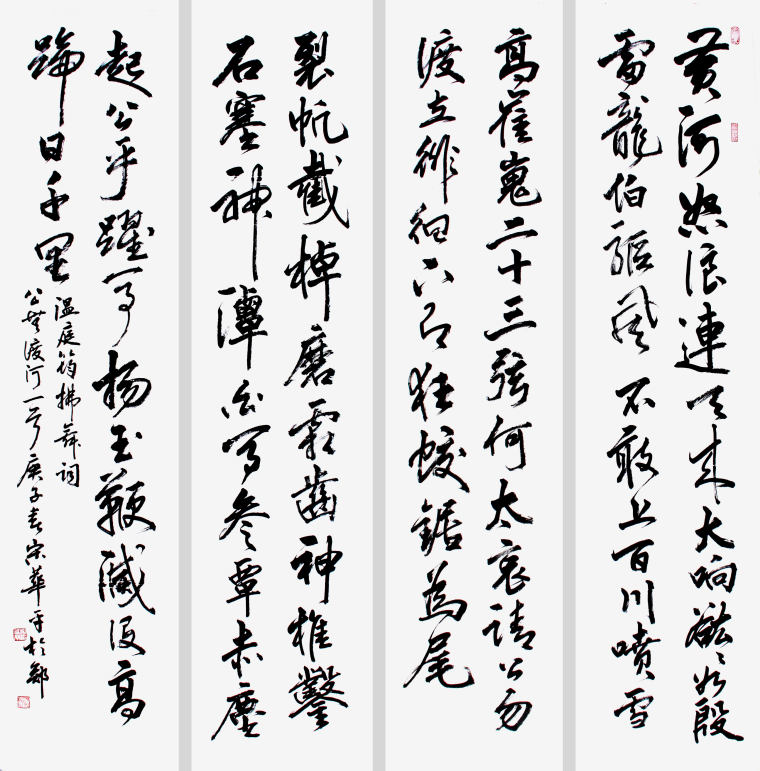 黄河怒浪連天来大响谹〻如殷
雷龍伯驅風不敢上百川噴雪
高崔嵬二十三弦何太哀請公勿
渡立徘徊下有狂蛟鋸為尾
裂帆截棹磨霜齒神椎鑿
石塞神潭白馬参覃赤塵
起公乎躍馬揚玉鞭滅没高
蹄日千里
温庭筠拂舞詞
公無渡河一首庚子春宋華平於鄭